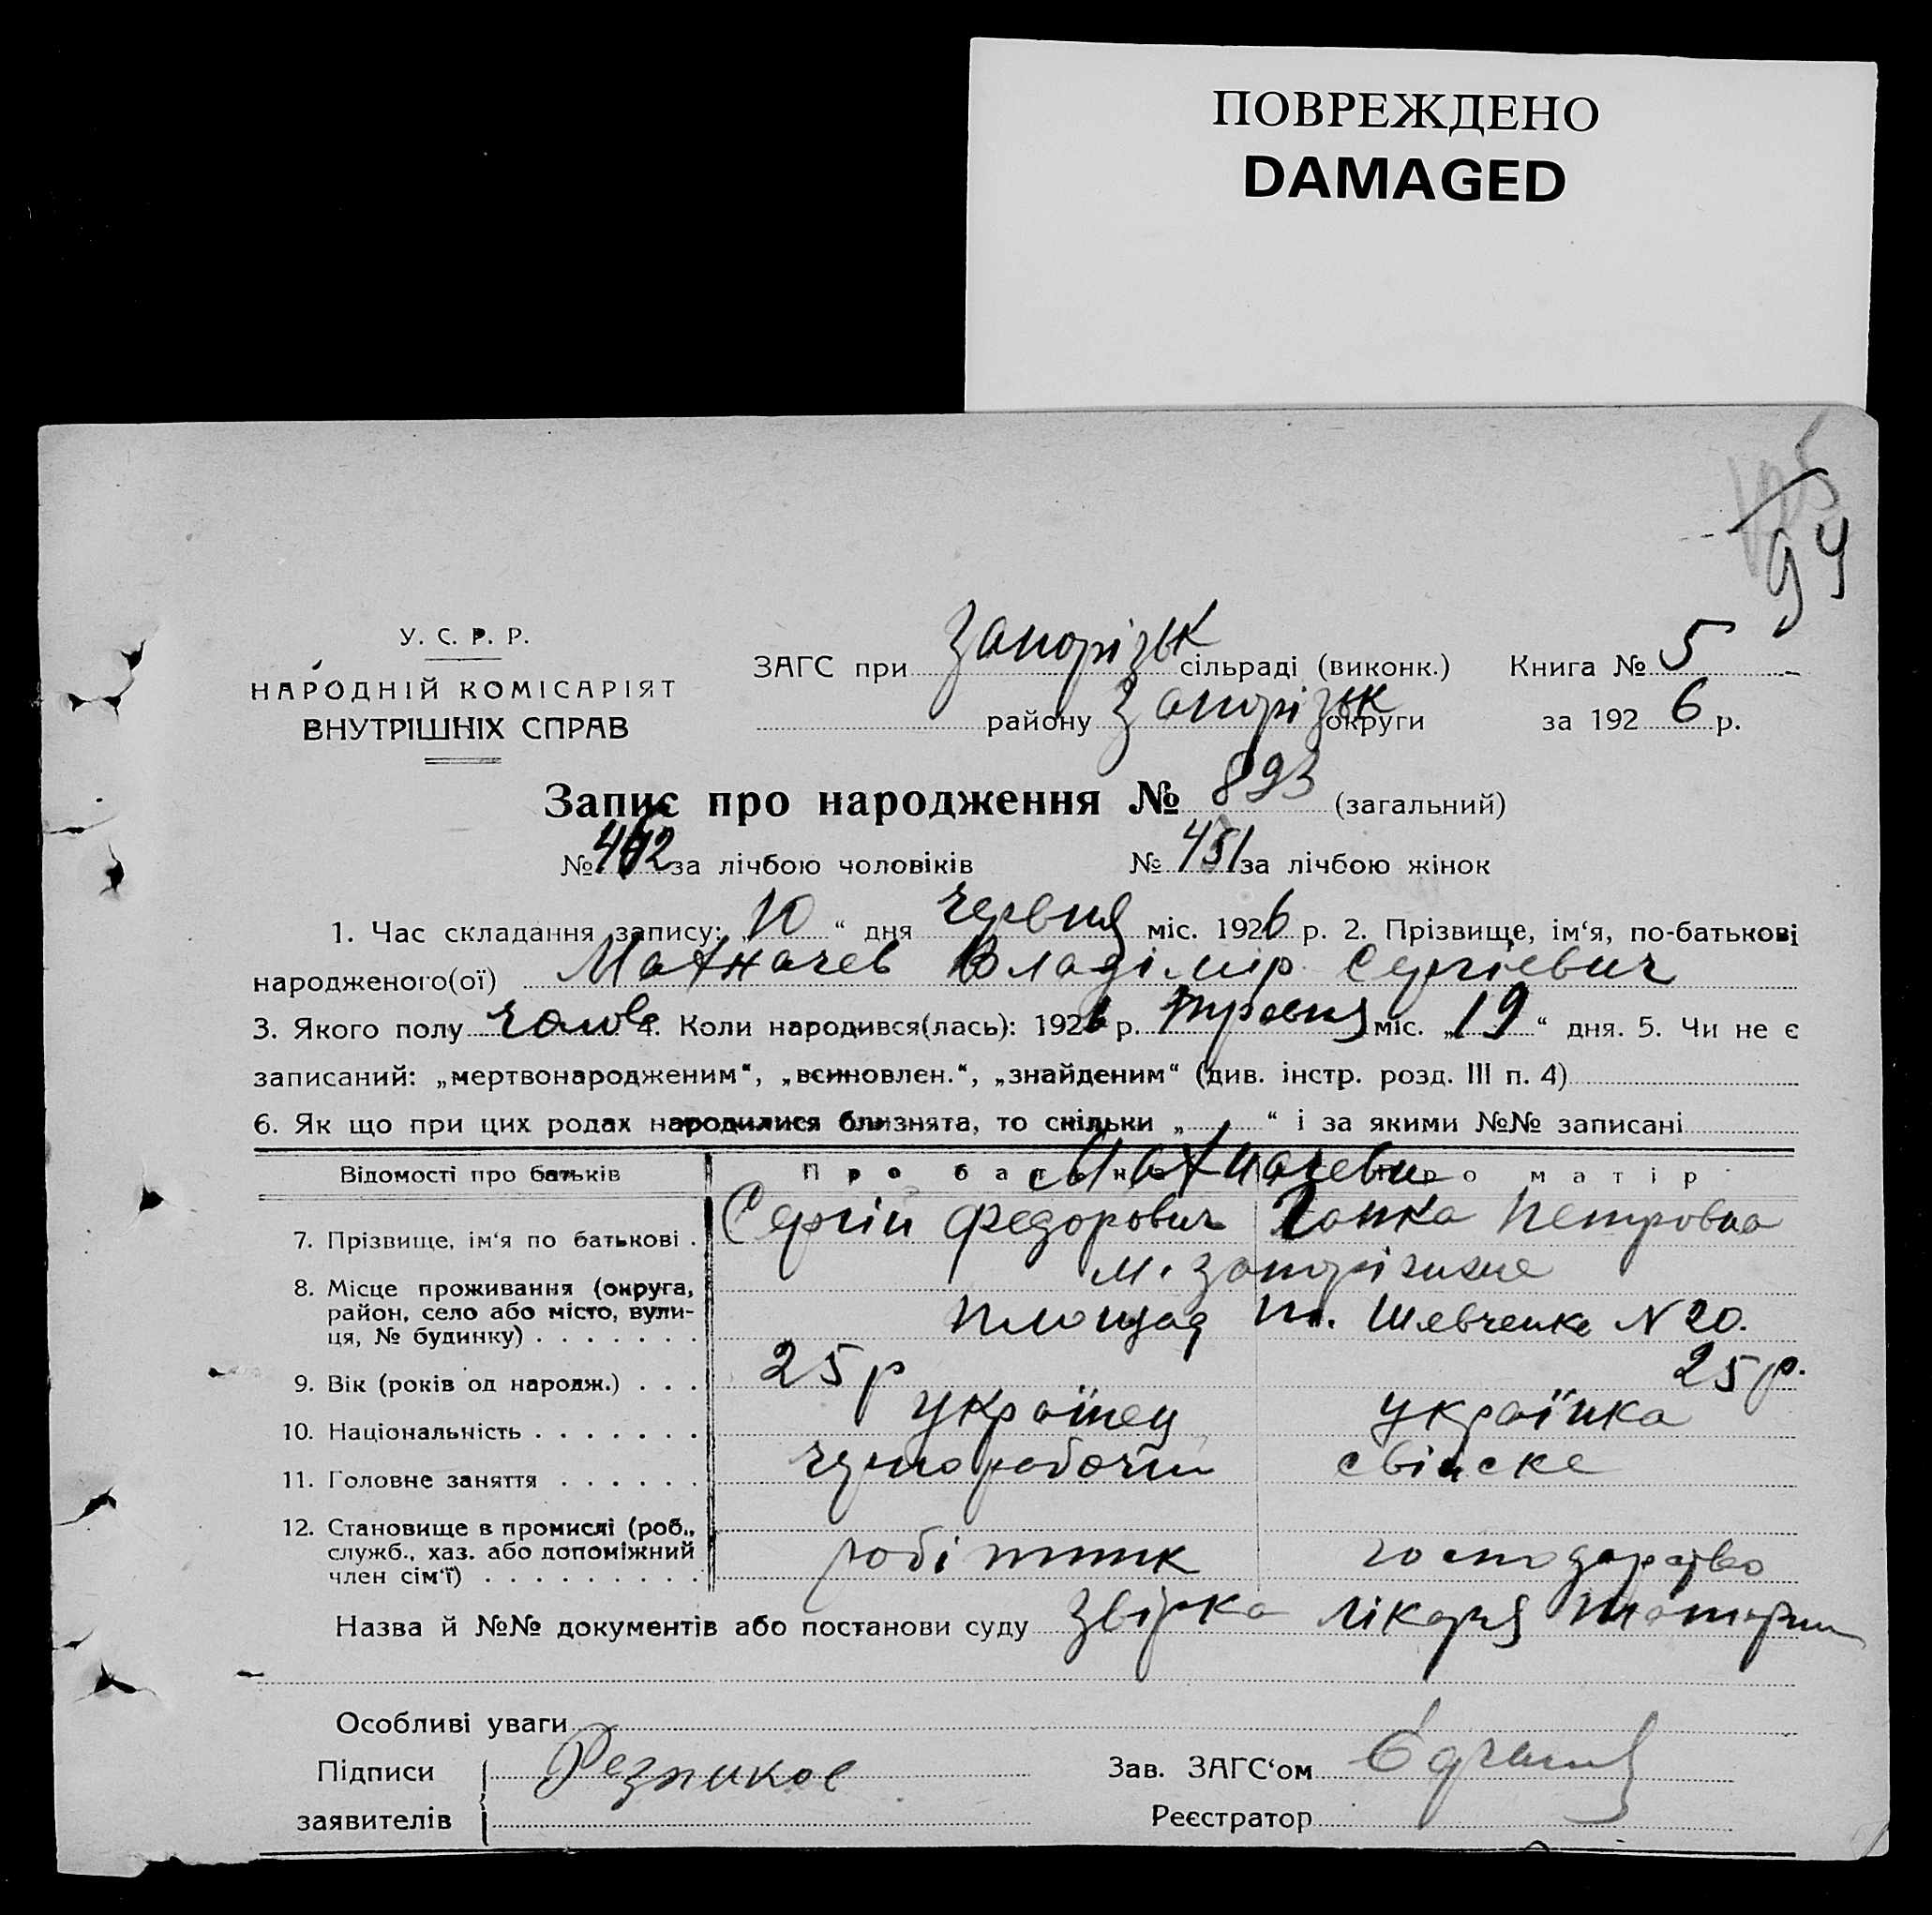 ПОВРЕЖДЕНО
DAMAGED
94
У. С. Р. Р.
НАРОДНІЙ КОМІСАРІЯТ
ВНУТРІШНІХ СПРАВ
ЗАГС при Запорізьк сільраді (виконк.) Книга № 5
району Запорізьк округи за 1926 р.
Запис про народження № 893 (загальний)
№ 442 за лічбою чоловіків № 451 за лічбою жінок
1. Час складання запису: „10“ дня червня міс. 1926 р. 2. Прізвище, ім‘я, по-батькові
народженого(ої) Махначев Владімир Сергієвич
3. Якого полу чолов 4. Коли народився(лась): 1926 р. травня міс. „19“ дня. 5. Чи не є
записаний: „мертвонародженим“, „всиновлен.“, „знайденим“ (див. інстр. розд. III п. 4)
6. Як що при цих родах народилися близнята, то скільки „ “ і за якими №№ записані
Відомості про батьків Про батька Про матір
Махначеви
7. Прізвище, ім‘я по батькові . Сергій Федорович Ганка Петровна
8. Місце проживання (округа, м. Запоріжже
район, село або місто, вули-
ця, № будинку) . . . . . . . площад Шевченка N 20.
9. Вік (років од народж.) . . . 25 р 25 р.
10. Національність . . . . . . . українец українка
11. Головне заняття . . . . . . чорноробочий свійске
12. Становище в промислі (роб.,
служб., хаз. або допоміжний
член сім‘ї) . . . . . . . . . робітник господарство
Назва й №№ документів або постанови суду Звірка лікаря
Особливі уваги
Підписи Резников Зав. ЗАГС‘ом
заявителів Реєстратор